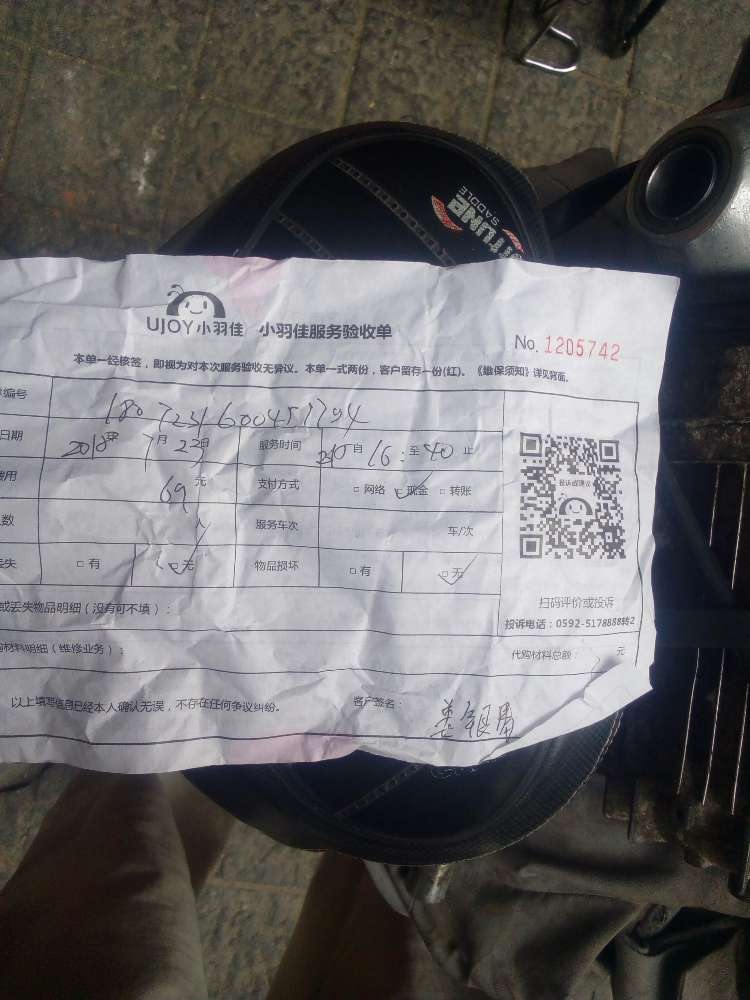 TUNE
SADDLE
UJOY小羽佳 小羽佳服务验收单
No. 1205742
本单一经核签，即视为对本次服务验收无异议。本单一式两份，客户留存一份(红)。《维保须知》详见背面。
编号
日期 2018年 7月 22日 服务时间 自 16: 至 40 止
费用 69元 支付方式 □网络 □现金 □转账
人数 人 服务车次 车/次
丢失 □有 □无 物品损坏 □有 □无
投诉或建议
扫码评价或投诉
投诉电话：0592-5178888转2
或丢失物品明细（没有可不填）：
购材料明细（维修业务）：
代购材料总额： 元
以上填写信息已经本人确认无误，不存在任何争议纠纷。 客户签名：